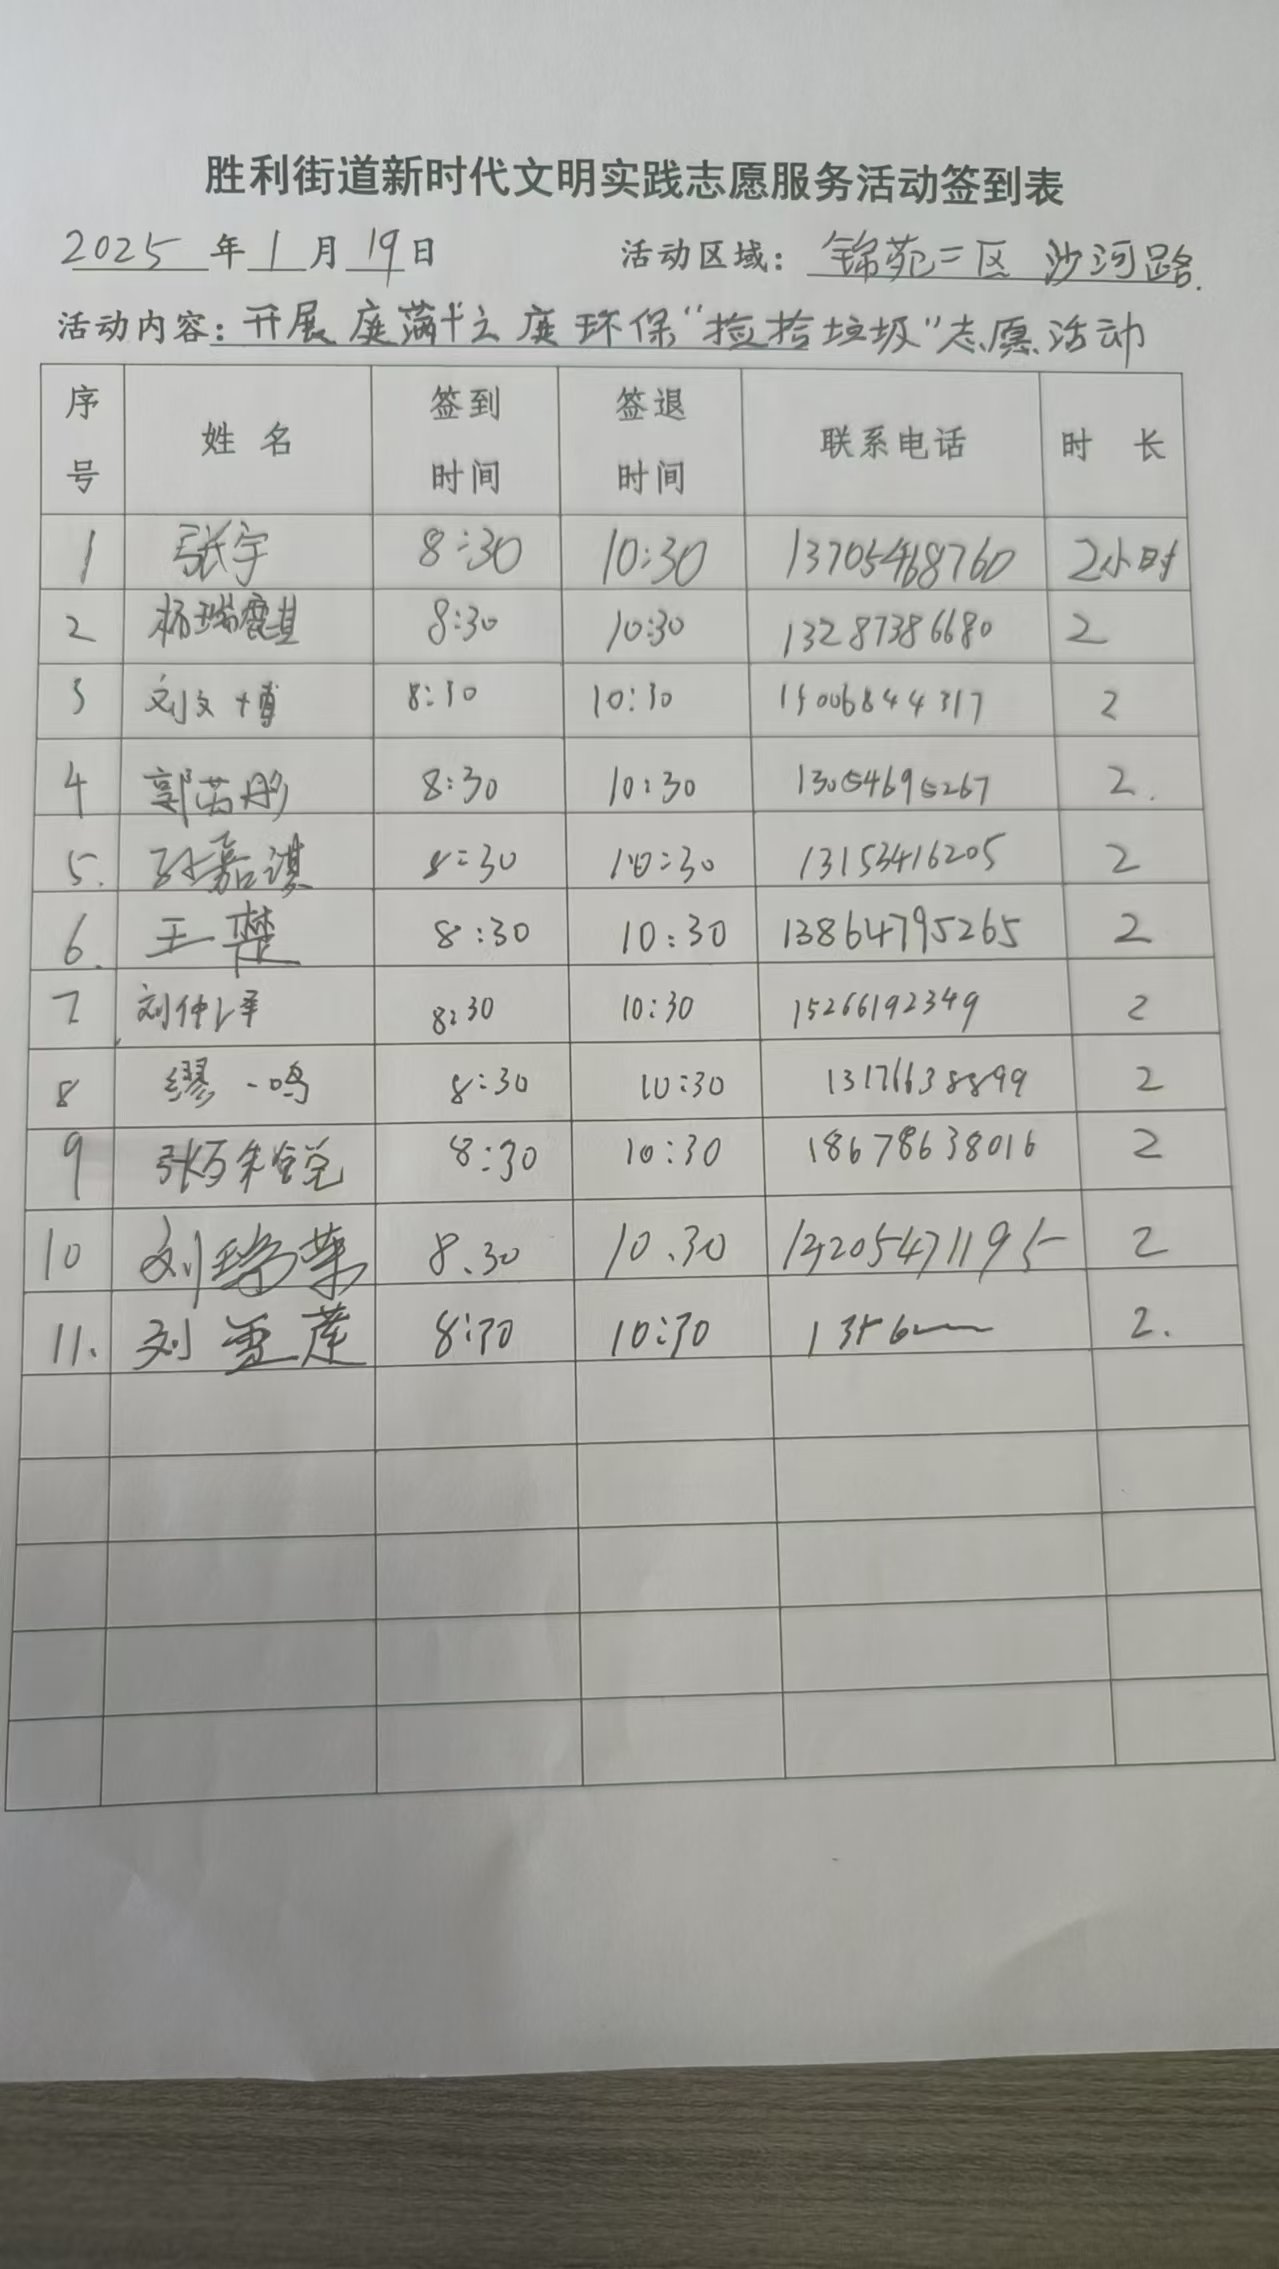 胜利街道新时代文明实践志愿服务活动签到表
2025 年 1 月 19 日 活动区域: 锦苑二区 沙河路.
活动内容: 开展 庭 环保“捡拾垃圾”志愿活动
序号 姓名 签到时间 签退时间 联系电话 时长
1 张宇 8:30 10:30 13705468760 2小时
2 杨瑞 8:30 10:30 13287386680 2
3 刘文博 8:30 10:30 15006844317 2
4 郭芮彤 8:30 10:30 13054695267 2.
5. 孙嘉淇 8:30 10:30 13153416205 2
6. 王一楚 8:30 10:30 13864795265 2
7 刘仲泽 8:30 10:30 15266192349 2
8 缪一鸣 8:30 10:30 13176638899 2
9 张 8:30 10:30 18678638016 2
10 刘瑞荣 8.30 10.30 2
11. 刘雪莲 8:30 10:30 1356 2.